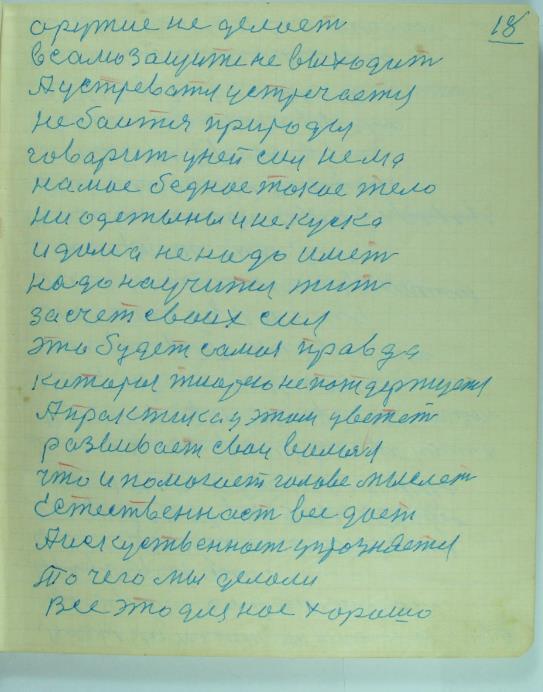 18
оружие не делает
в самозащити не выходит
А устреватя устречаетя
не боится природы
говорит уней сил нема
на мое бедное токое тело
ни одетыны и не куска
и дома не надо имет
надо научится жит
за счет своих сил
это будет самая правда
которая тиорею непотдержуетя
А практика у этом цветет
развивает свои
что и помогает голове мыслет
Естественност все дает
А искуственност упрозняется
То чего мы делали
все это для нас хорошо